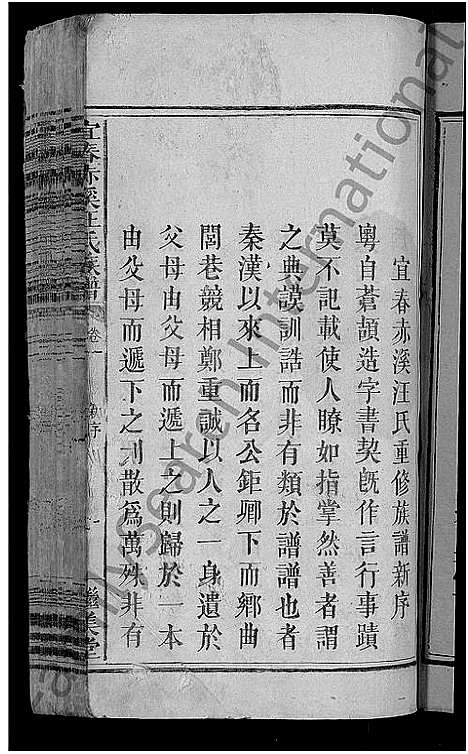 宜春赤溪汪氏重修族譜新序
粵自蒼頡造字書契既作言行事蹟
莫不記載使人瞭如指掌然善者謂
之典謨訓誥而非有類於譜譜也者
秦漢以來上而名公鉅卿下而鄉曲
閭巷競相鄭重誠以人之一身遺於
父母由父母而遞上之則歸於一本
由父母而遞下之則散爲萬殊非有
宜春赤溪汪氏族譜 卷一 新序 一